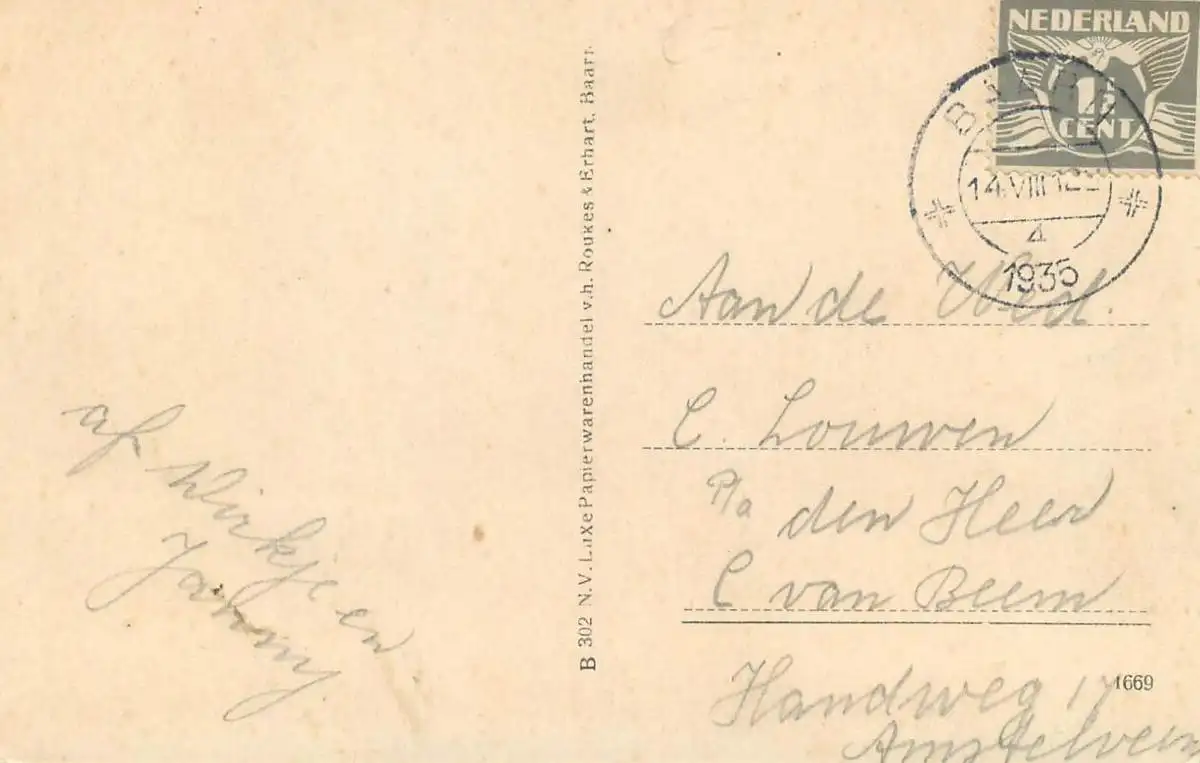 NEDERLAND
1½
CENT
BAARN
14.VIII 12
4
1935
Aan de Wed.
C. Louwen
P/a den Heer
C van Beem
Handweg 17
Amstelveen
1669
B 302 N.V. Luxe Papierwarenhandel v.h. Roukes & Erhart, Baarn
af
Wirkje en
Janny.